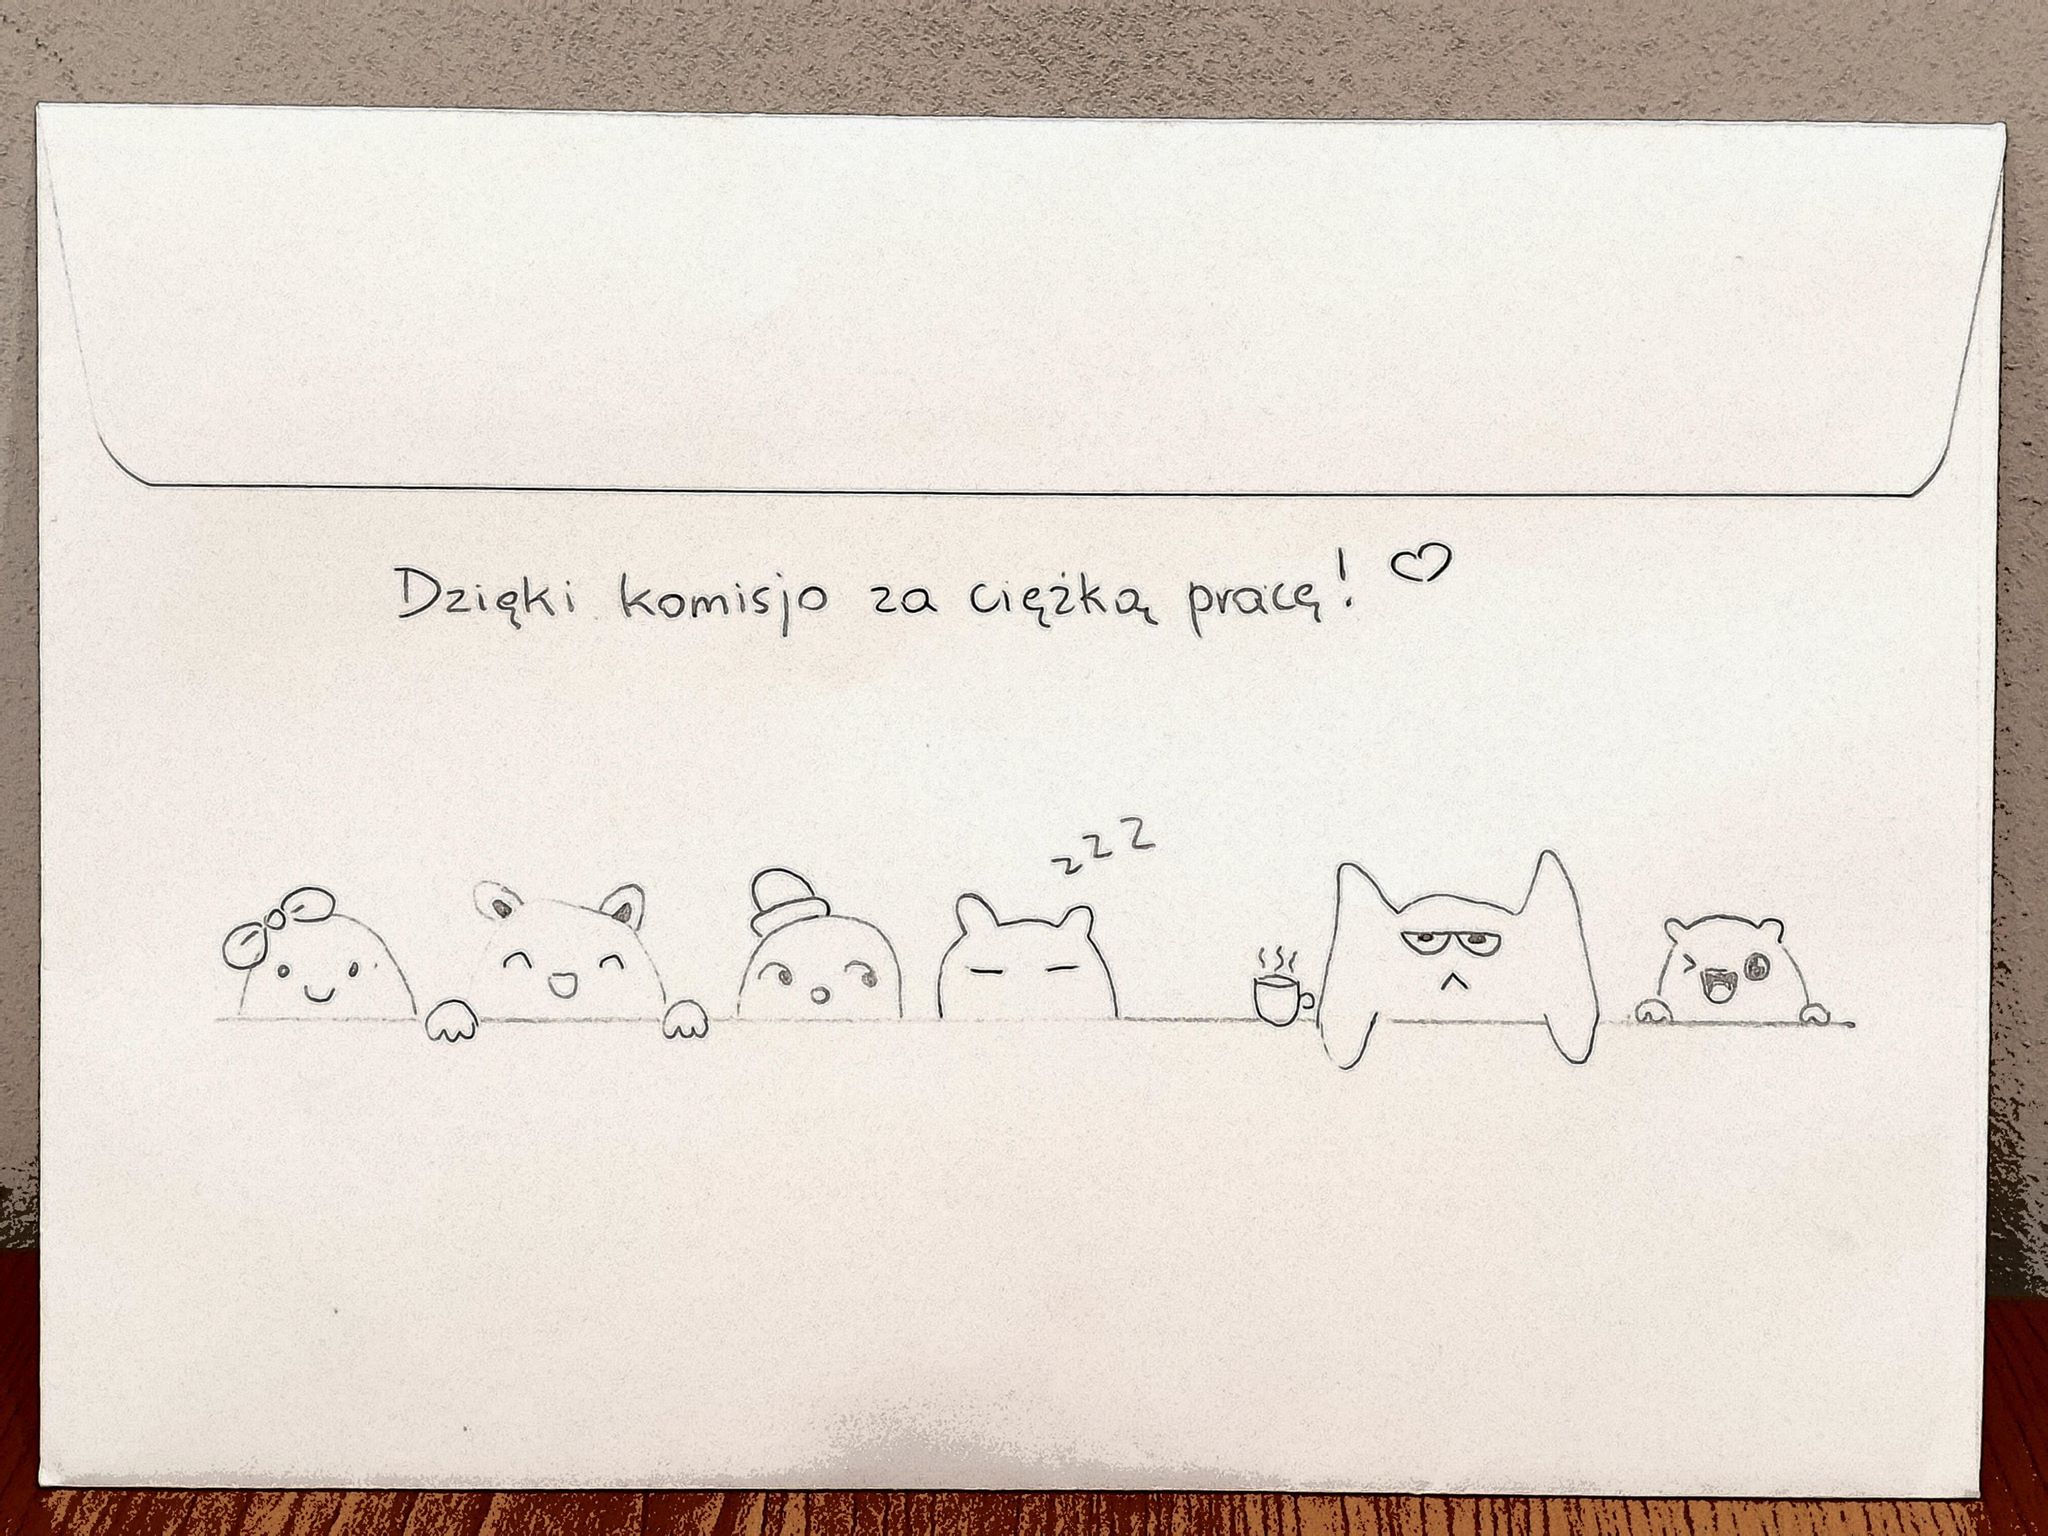 Dzięki komisjo za ciężką pracę! ♡
z z z